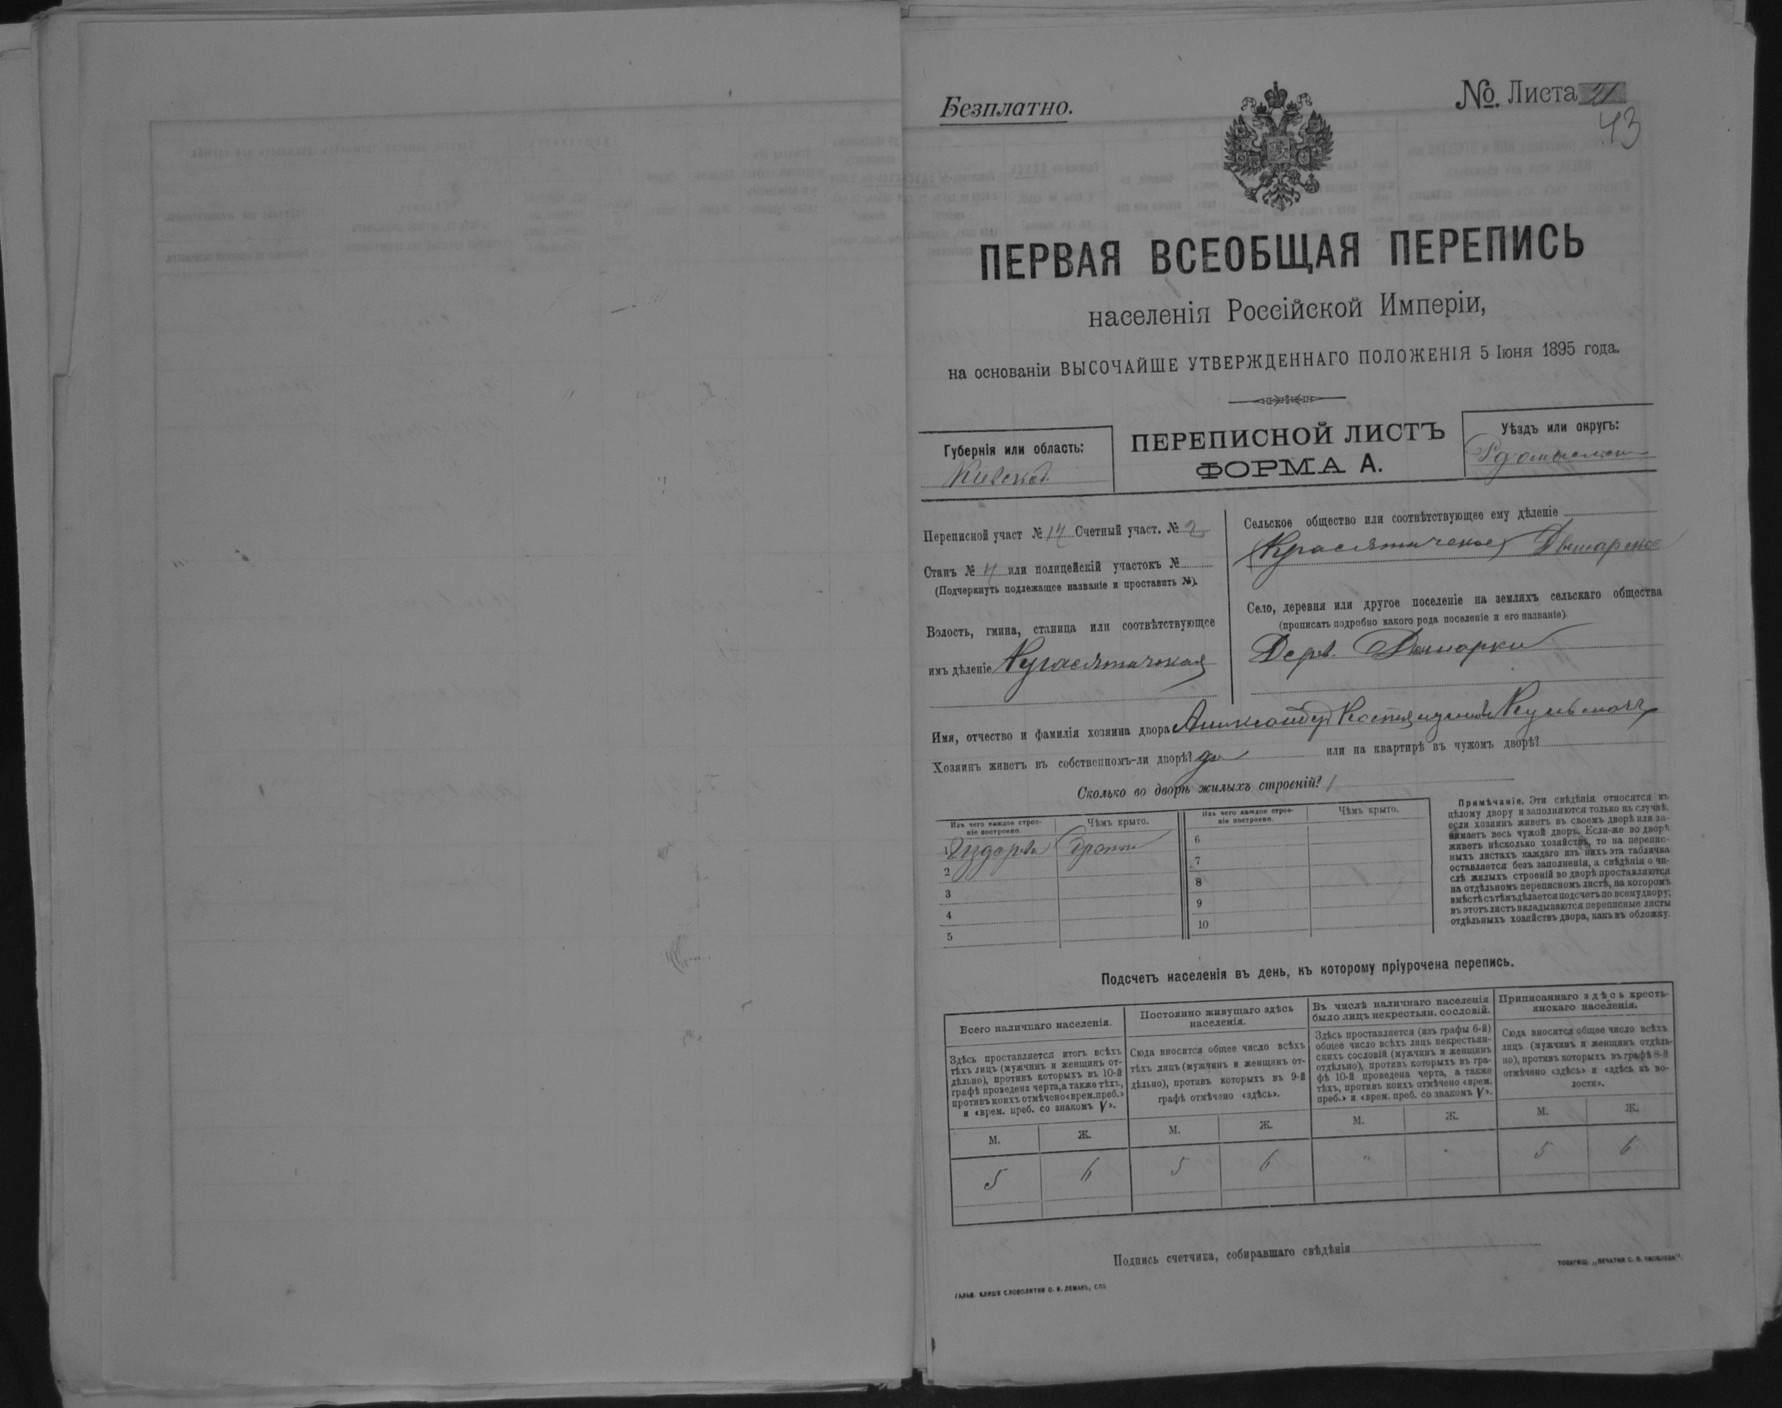 Безплатно.
№. Листа 21
43
ПЕРВАЯ ВСЕОБЩАЯ ПЕРЕПИСЬ
населенія Россійской Имперіи,
на основаніи ВЫСОЧАЙШЕ УТВЕРЖДЕННАГО ПОЛОЖЕНІЯ 5 Іюня 1895 года.
Губернія или область:
Кіевская
ПЕРЕПИСНОЙ ЛИСТЪ
ФОРМА А.
Уѣздъ или округъ:
Переписной участ № 14 Счетный участ. № 2
Станъ № 4 или полицейскій участокъ №
(Подчеркнуть подлежащее названіе и проставить №).
Волость, гмина, станица или соотвѣтствующее
имъ дѣленіе
Сельское общество или соотвѣтствующее ему дѣленіе
Село, деревня или другое поселеніе на земляхъ сельскаго общества
(прописать подробно какого рода поселеніе и его названіе).
Дерв.
Имя, отчество и фамилія хозяина двора Александръ
Хозяинъ живетъ въ собственномъ-ли дворѣ? да или на квартирѣ въ чужомъ дворѣ?
Сколько во дворѣ жилыхъ строеній? 1
Изъ чего каждое строе-
ніе построено.
Чѣмъ крыто.
1
2
3
4
5
Изъ чего каждое строе-
ніе построено.
Чѣмъ крыто.
6
7
8
9
10
Примѣчаніе. Эти свѣдѣнія относятся къ
цѣлому двору и заполняются только въ случаѣ,
если хозяинъ живетъ въ своемъ дворѣ или за-
нимаетъ весь чужой дворъ. Если-же во дворѣ
живетъ нѣсколько хозяйствъ, то на перепис-
ныхъ листахъ каждаго изъ нихъ эта табличка
оставляется безъ заполненія, а свѣдѣнія о чи-
слѣ жилыхъ строеній во дворѣ проставляются
на отдѣльномъ переписномъ листѣ, на которомъ
вмѣстѣ съ тѣмъ дѣлается подсчетъ по всему двору;
въ этотъ листъ вкладываются переписные листы
отдѣльныхъ хозяйствъ двора, какъ въ обложку.
Подсчетъ населенія въ день, къ которому пріурочена перепись.
Всего наличнаго населенія.
Здѣсь проставляется итогъ всѣхъ
тѣхъ лицъ (мужчинъ и женщинъ от-
дѣльно), противъ которыхъ въ 10-й
графѣ проведена черта, а также тѣхъ,
противъ коихъ отмѣчено «врем. преб.»
и «врем. преб. со знакомъ V».
М. Ж.
5 6
Постоянно живущаго здѣсь
населенія.
Сюда вносится общее число всѣхъ
тѣхъ лицъ (мужчинъ и женщинъ от-
дѣльно), противъ которыхъ въ 9-й
графѣ отмѣчено «здѣсь».
М. Ж.
5 6
Въ числѣ наличнаго населенія
было лицъ некрестьян. сословій.
Здѣсь проставляется (изъ графы 6-й)
общее число всѣхъ лицъ некрестьян-
скихъ сословій (мужчинъ и женщинъ
отдѣльно), противъ которыхъ въ гра-
фѣ 10-й проведена черта, а также
тѣхъ, противъ коихъ отмѣчено «врем.
преб.» и «врем. преб. со знакомъ V».
М. Ж.
" "
Приписаннаго здѣсь кресть-
янскаго населенія.
Сюда вносится общее число всѣхъ
лицъ (мужчинъ и женщинъ отдѣль-
но), противъ которыхъ въ графѣ 8-й
отмѣчено «здѣсь» и «здѣсь въ во-
лости».
М. Ж.
5 6
Подпись счетчика, собиравшаго свѣдѣнія
ГАЛЬВ. КЛИШЕ СЛОВОЛИТНИ О. И. ЛЕМАНЪ, СПБ
ТОВАРИЩ. „ПЕЧАТНЯ С. П. ЯКОВЛЕВА“.